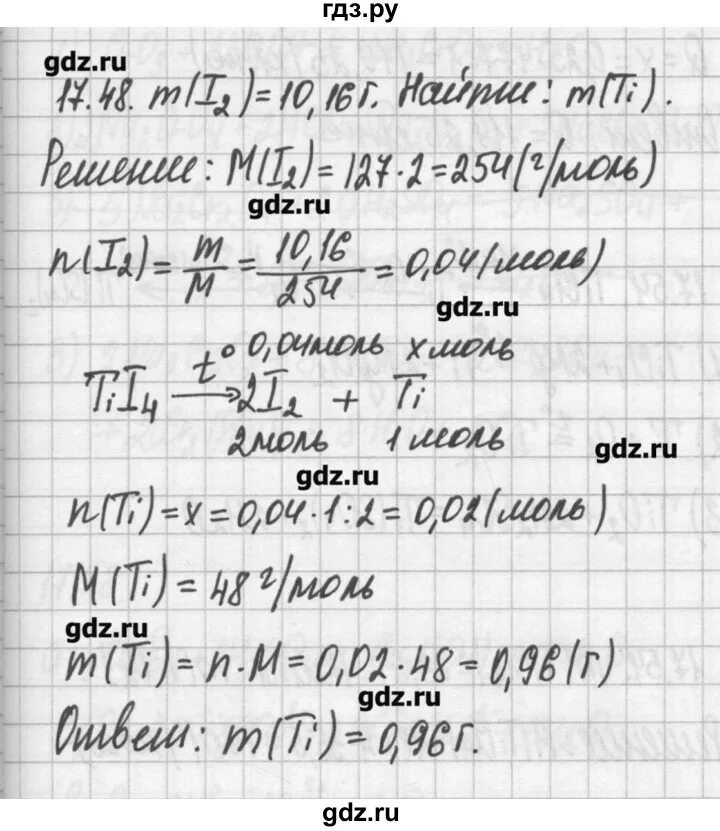 гдз.ру
gdz.ru
17.48. m(I₂)=10,16г. Найти: m(Ti).
Решение: M(I₂)=127·2=254(г/моль)
gdz.ru
n(I₂)=m/M=10,16/254=0,04(моль)
gdz.ru
0,04моль х моль
TiI₄ t°→ 2I₂ + Ti
2моль 1 моль
gdz.ru
gdz.ru
n(Ti)=x=0,04·1:2=0,02(моль)
M(Ti)=48 г/моль
gdz.ru
m(Ti)=n·M=0,02·48=0,96(г)
gdz.ru
Ответ: m(Ti)=0,96г.
gdz.ru